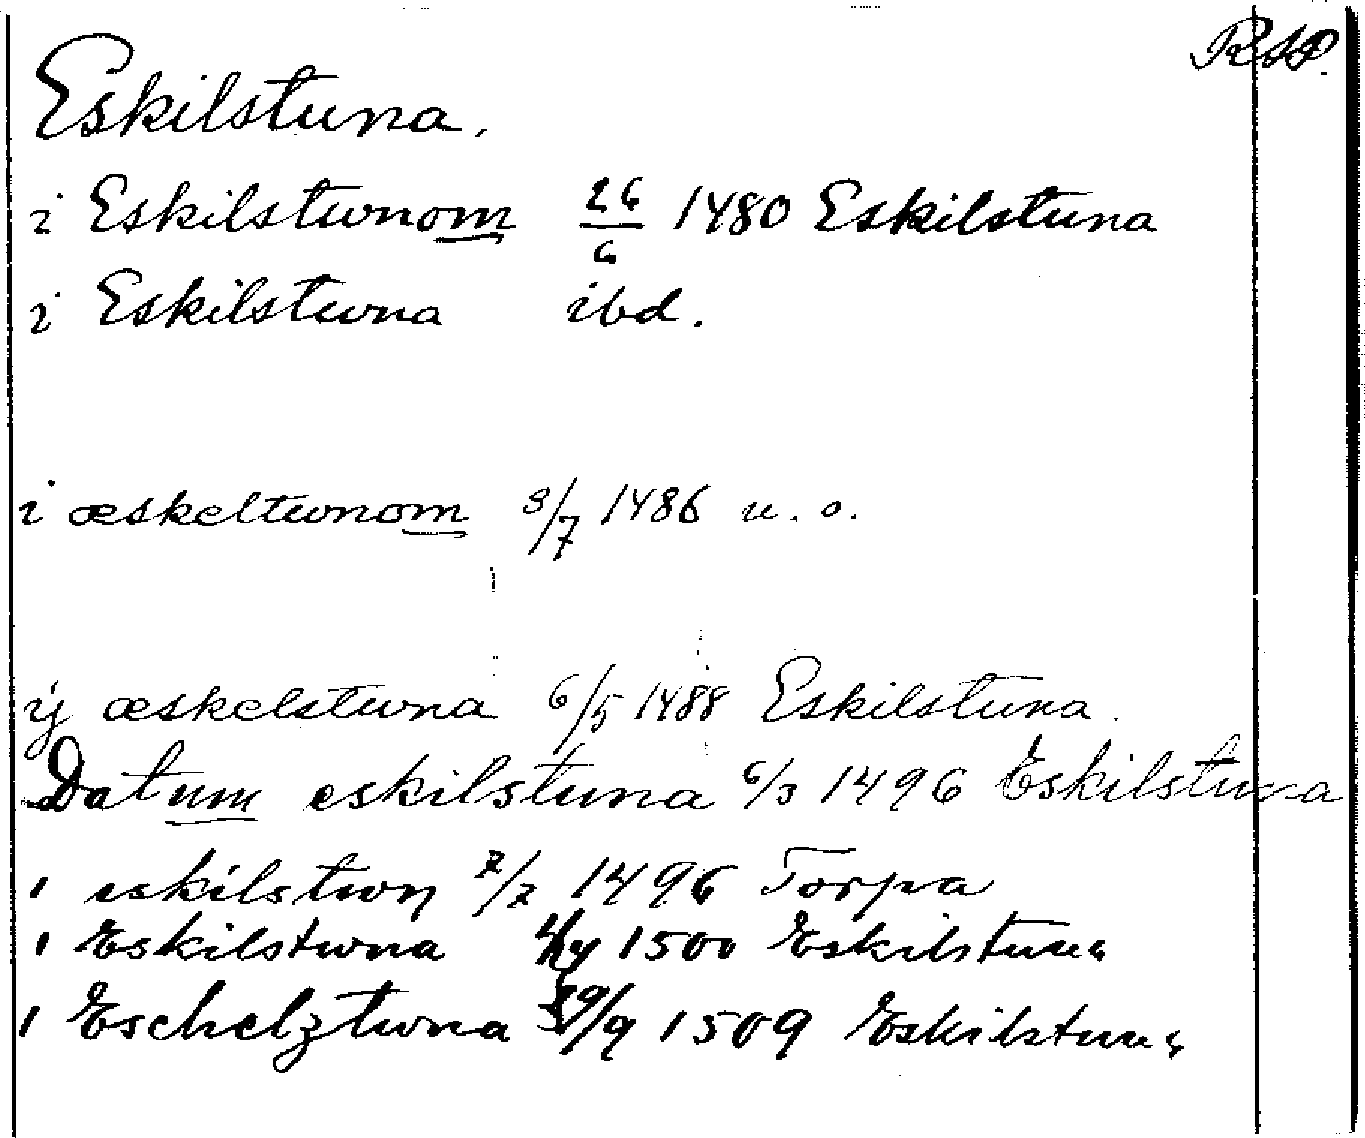 Eskilstuna.
i Eskilstwnom 26/6 1480 Eskilstuna
i Eskilstwna ibd.
i æskeltwnom 3/7 1486 u. o.
ÿ æskelstwna 6/5 1488 Eskilstuna.
Datum eskilstuna 6/3 1496 Eskilstuna
i eskilstwn 7/7 1496 Torpa
i Eskilstwna 1500 Eskilstuna
i Eschelztwna /9 1509 Eskilstuna